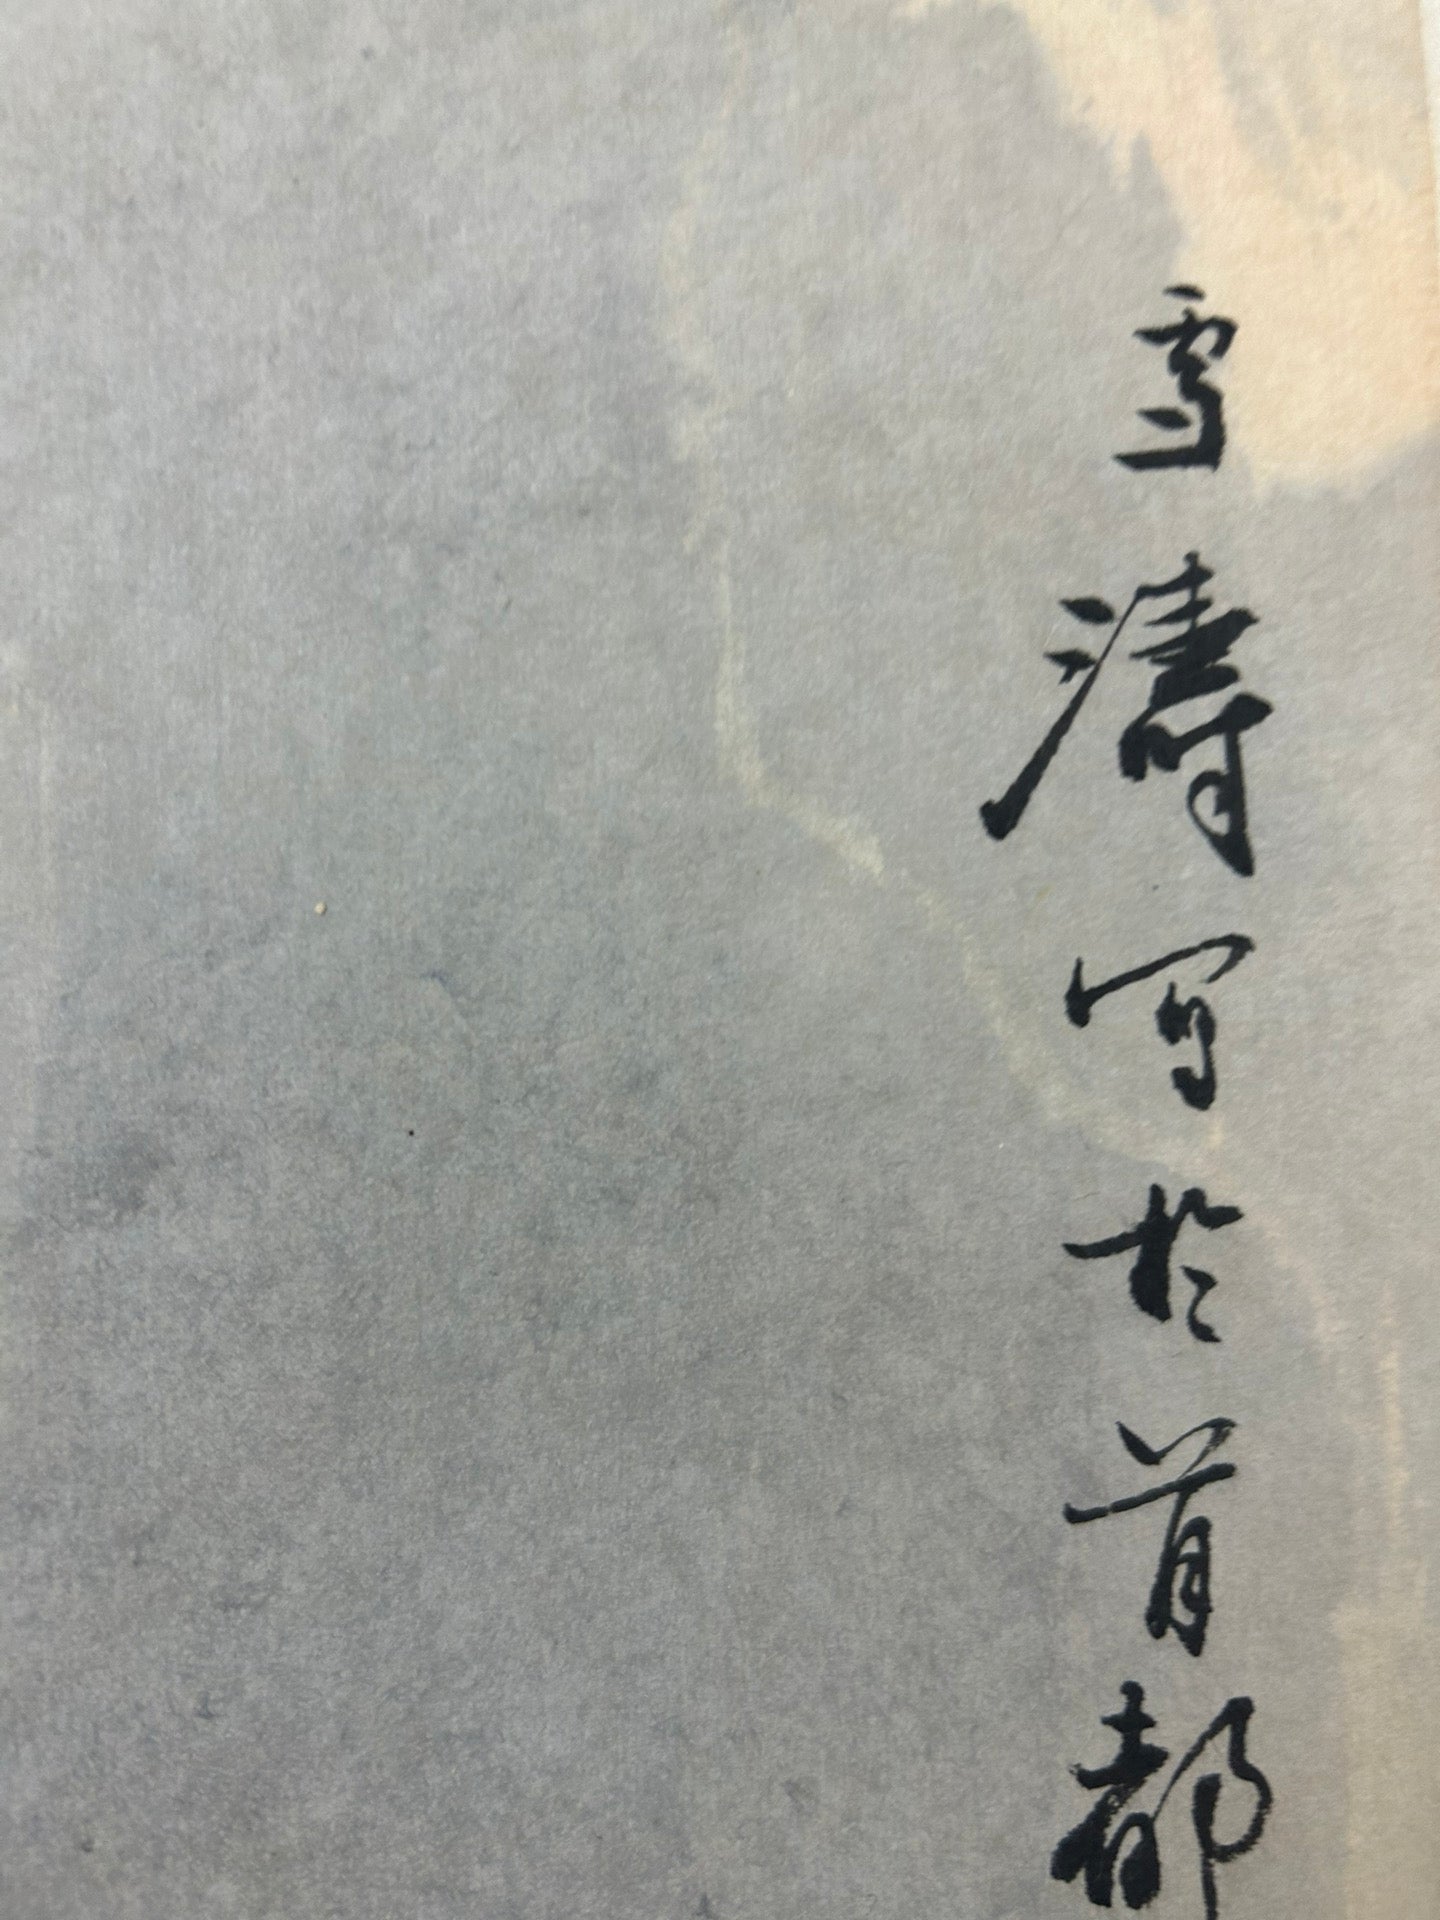 雪濤写於首都